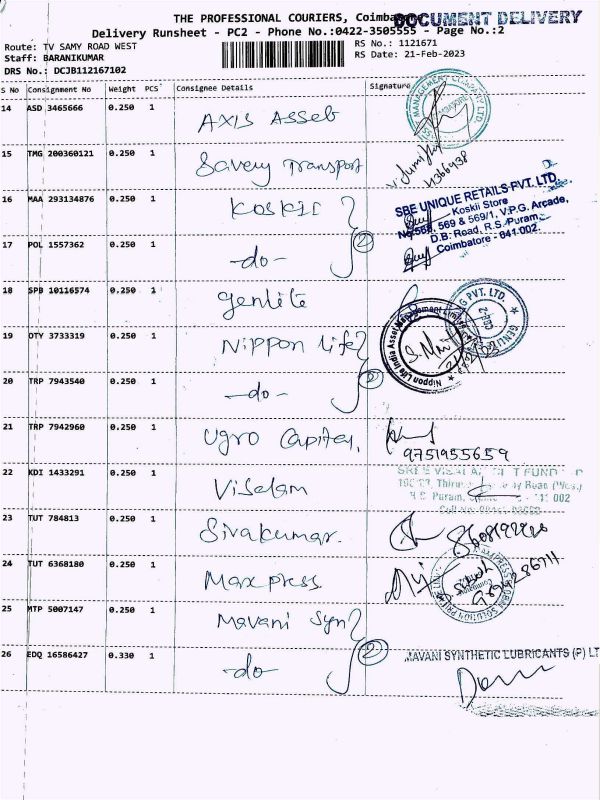 THE PROFESSIONAL COURIERS, Coimba
DOCUMENT DELIVERY
Delivery Runsheet - PC2 - Phone No.:0422-3505555 - Page No.:2
Route: TV SAMY ROAD WEST
RS No.: 1121671
Staff: BARANIKUMAR
RS Date: 21-Feb-2023
DRS No.: DCJB112167102
S No Consignment No Weight PCS Consignee Details Signature
14 ASD 3465666 0.250 1 Axis Asseb
15 TMG 200360121 0.250 1 Savery Transport
16 MAA 293134876 0.250 1 KOSKII
SBE UNIQUE RETAILS PVT. LTD.
Koskii Store
No.568, 569 & 569/1, V.P.G. Arcade,
D.B. Road, R.S. Puram
Coimbatore - 641 002.
17 POL 1557362 0.250 1 -do- 2
18 SPB 10116574 0.250 1 genlite
19 OTY 3733319 0.250 1 Nippon life
Nippon Life India Asset Management Limited
20 TRP 7943540 0.250 1 -do- 2
21 TRP 7942960 0.250 1 Ugro Capital,
9751955659
22 KDI 1433291 0.250 1 Viselam
23 TUT 784813 0.250 1 Sivakumar.
24 TUT 6368180 0.250 1 Maxpress
25 MTP 5007147 0.250 1 Mavani Syn
26 EDQ 16586427 0.330 1 -do- 2
MAVANI SYNTHETIC LUBRICANTS (P) LT